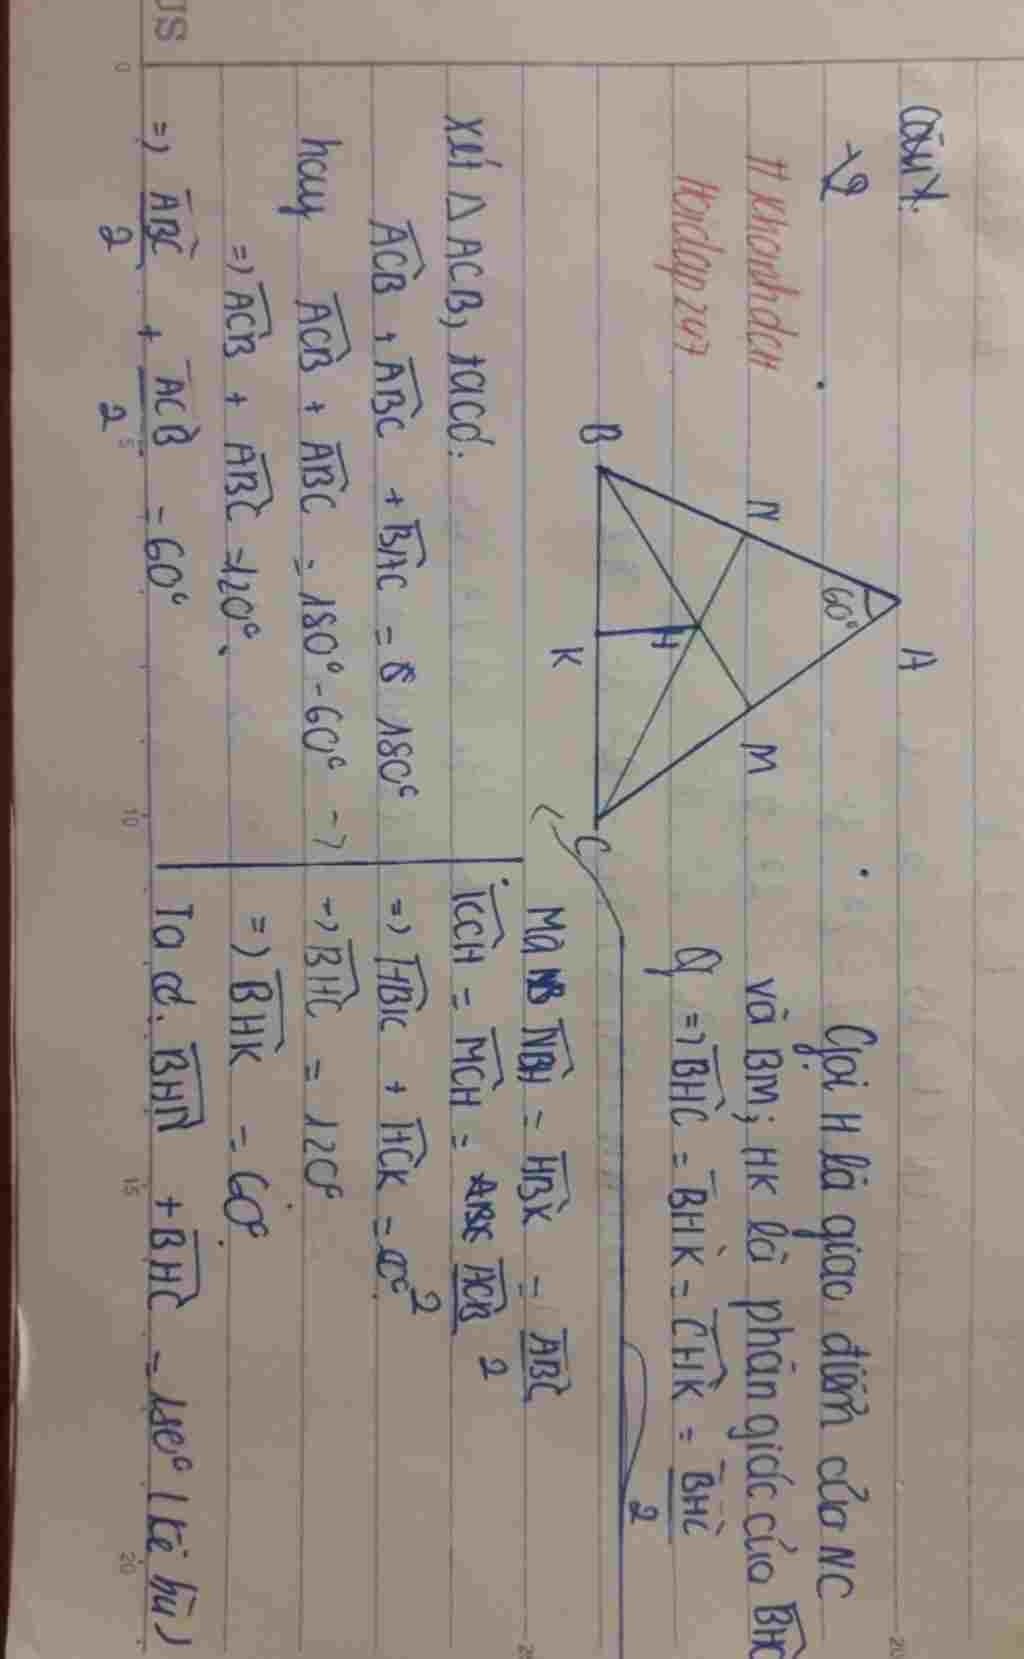 Câu 1:
# Khanhdch
Hoidap247
A
60°
N
M
H
B
K
C
Gọi H là giao điểm của NC
và BM; HK là phân giác của BHC
=> BHC = BHK = CHK = BHC
2
Xét Δ ACB, ta có:
ACB + ABC + BAC = 180°
hay ACB + ABC = 180° - 60° ->
=> ACB + ABC = 120°.
=> ABC/2 + ACB/2 - 60°
Mà NBH = HBK = ABC
KCH = MCH = ACB/2
=> HBK + HCK =
-> BHC = 120°
=> BHK = 60°
Ta có: BHN + BHC = 180° (kề bù)
0
5
10
15
20
20